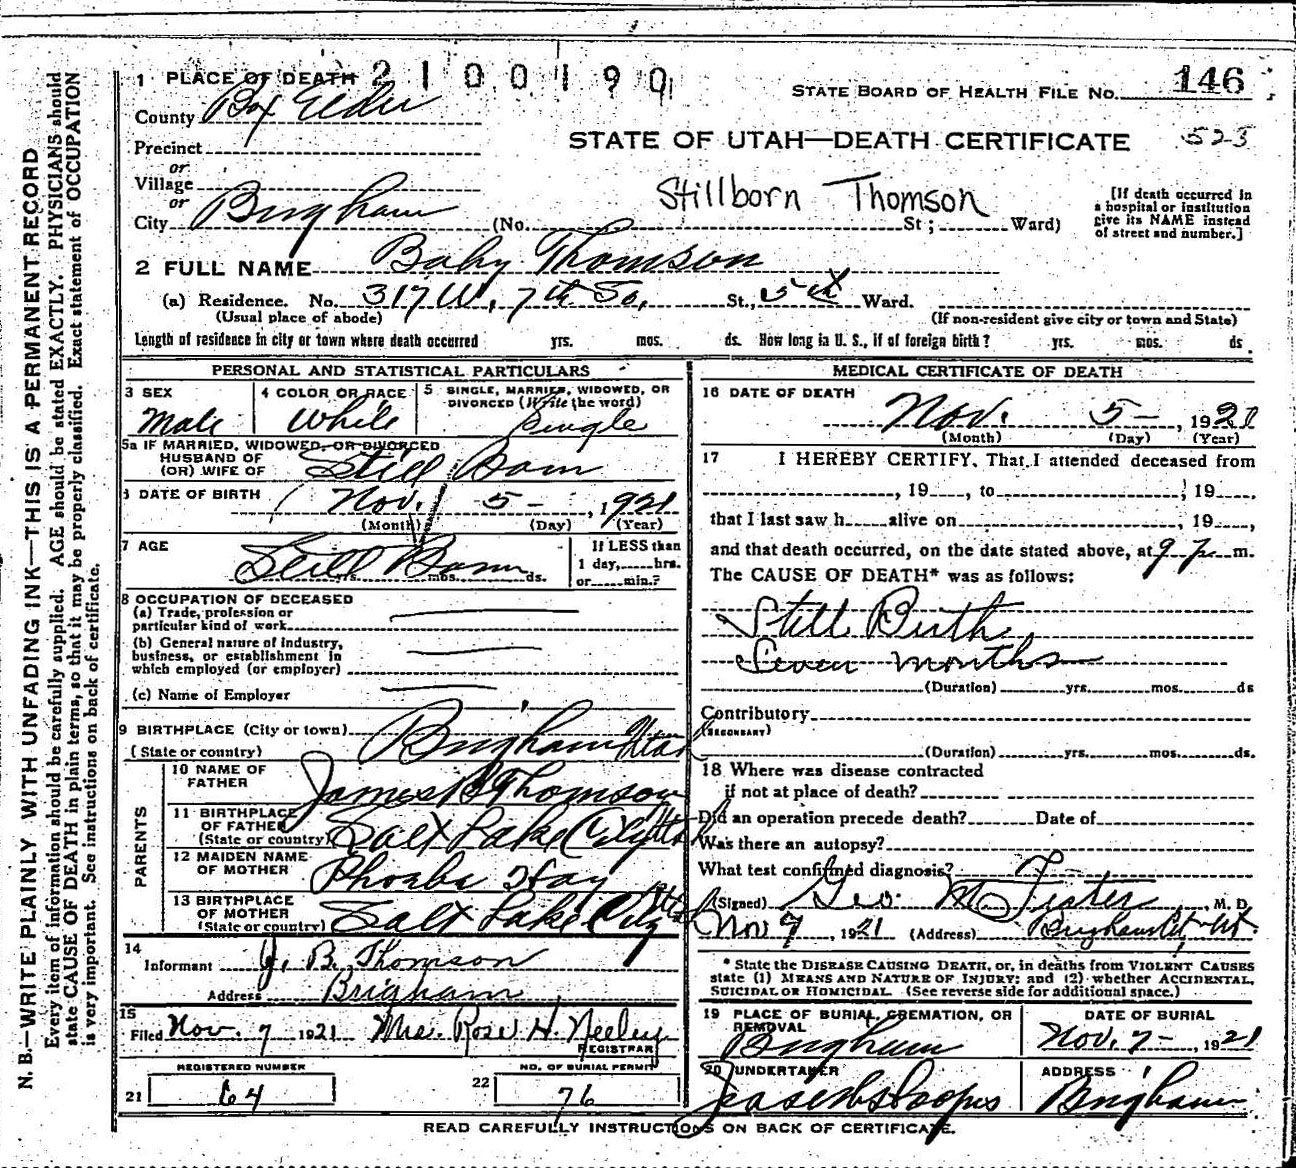 1 PLACE OF DEATH 2100190
STATE BOARD OF HEALTH FILE NO. 146
County Box Elder
STATE OF UTAH—DEATH CERTIFICATE 523
Precinct
or
Village
or
City Brigham (No. St; Ward)
Stillborn Thomson
[If death occurred in
a hospital or institution
give its NAME instead
of street and number.]
2 FULL NAME Baby Thomson
(a) Residence. No. 317 W. 7th So. St., 5th Ward.
(Usual place of abode) (If non-resident give city or town and State)
Length of residence in city or town where death occurred yrs. mos. ds. How long in U. S., if of foreign birth? yrs. mos. ds.
PERSONAL AND STATISTICAL PARTICULARS
3 SEX Male
4 COLOR OR RACE White
5 SINGLE, MARRIED, WIDOWED, OR
DIVORCED (Write the word)
Single
5a IF MARRIED, WIDOWED, OR DIVORCED
HUSBAND OF
(OR) WIFE OF Still Born
6 DATE OF BIRTH Nov. 5 - , 1921
(Month) (Day) (Year)
7 AGE Still Born
yrs. mos. ds.
If LESS than
1 day, hrs.
or min.?
8 OCCUPATION OF DECEASED
(a) Trade, profession or
particular kind of work
(b) General nature of industry,
business, or establishment in
which employed (or employer)
(c) Name of Employer
9 BIRTHPLACE (City or town)
(State or country) Brigham Utah
PARENTS
10 NAME OF
FATHER James B Thomson
11 BIRTHPLACE
OF FATHER
(State or country) Salt Lake City Utah
12 MAIDEN NAME
OF MOTHER Phoebe Hay
13 BIRTHPLACE
OF MOTHER
(State or country) Salt Lake City Utah
14 Informant J. B. Thomson
Address Brigham
15 Filed Nov. 7 1921 Mrs. Rose H. Neeley
REGISTRAR
REGISTERED NUMBER
21 64
NO. OF BURIAL PERMIT
22 76
MEDICAL CERTIFICATE OF DEATH
16 DATE OF DEATH
Nov. 5 - , 1921
(Month) (Day) (Year)
17 I HEREBY CERTIFY, That I attended deceased from
, 19 , to , 19 ,
that I last saw h alive on , 19 ,
and that death occurred, on the date stated above, at 9 P. m.
The CAUSE OF DEATH* was as follows:
Still Birth
Seven months
(Duration) yrs. mos. ds
Contributory
(SECONDARY)
(Duration) yrs. mos. ds.
18 Where was disease contracted
if not at place of death?
Did an operation precede death? Date of
Was there an autopsy?
What test confirmed diagnosis?
(Signed) Geo. M. Fister, M. D.
Nov 7, 1921 (Address) Brigham Ut
* State the DISEASE CAUSING DEATH, or, in deaths from VIOLENT CAUSES
state (1) MEANS AND NATURE OF INJURY; and (2) whether ACCIDENTAL,
SUICIDAL OR HOMICIDAL. (See reverse side for additional space.)
19 PLACE OF BURIAL, CREMATION, OR
REMOVAL
Brigham
DATE OF BURIAL
Nov. 7 - , 1921
20 UNDERTAKER
ADDRESS
Brigham
READ CAREFULLY INSTRUCTIONS ON BACK OF CERTIFICATE.
N. B.—WRITE PLAINLY WITH UNFADING INK—THIS IS A PERMANENT RECORD
Every item of information should be carefully supplied. AGE should be stated EXACTLY. PHYSICIANS should
state CAUSE OF DEATH in plain terms, so that it may be properly classified. Exact statement of OCCUPATION
is very important. See instructions on back of certificate.